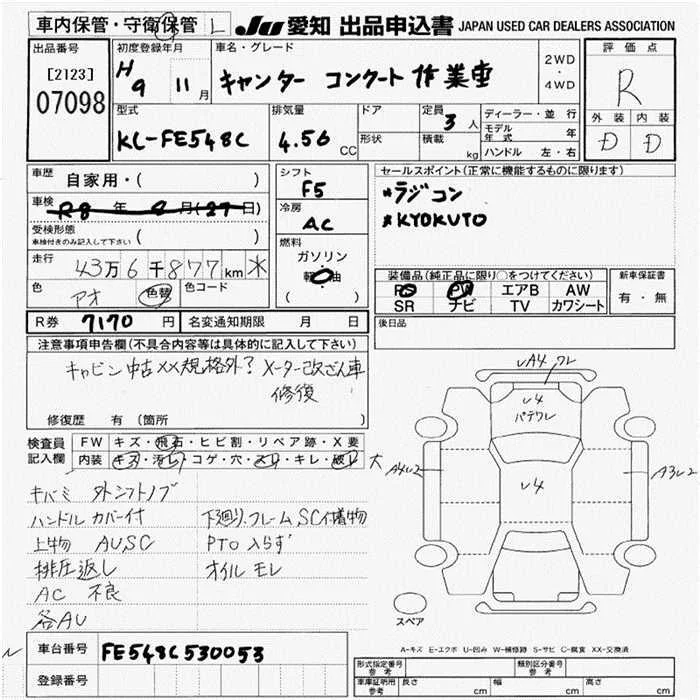 車内保管・守衛保管 L JU 愛知 出品申込書 JAPAN USED CAR DEALERS ASSOCIATION
出品番号 初度登録年月 車名・グレード 2WD・4WD 評価点
[2123]
07098
H9 11月 キャンター コンクート作業車 R
型式 排気量 ドア 定員 3人 ディーラー・並行 外装 内装
KL-FE548C 4.56 CC 形状 積載 kg モデル年式 年 D D
ハンドル 左・右
車歴 自家用・( ) シフト F5 セールスポイント(正常に機能するものに限ります)
車検 R8 年 2月(27日) 冷房 AC *ラジコン
受検形態 ( ) *KYOKUTO
車検付きのみ記入して下さい
燃料 ガソリン 軽油 ( )
走行 43万6千877km *
色 アオ 色替 色コード
装備品(純正品に限り○をつけてください) 新車保証書
PS PW エアB AW 有・無
SR ナビ TV カワシート
R券 7170 円 名変通知期限 月 日 後日品
注意事項申告欄(不具合内容等は具体的に記入して下さい)
キャビン中古××規格外? メーター改ざん車
修復
修復歴 有(箇所 )
検査員記入欄 FW キズ・飛石・ヒビ割・リペア跡・X要
内装 キズ・汚レ・コゲ・穴・スレ・キレ・破レ 大
キバミ 外シフトノブ
ハンドルカバー付 下廻り、フレームSC付着物
上物 AU,SC PTO入らず
排圧返し オイルモレ
AC 不良
各AU
UA4 ワレ
U4
パテワレ
A4U2 U4 A3U2
スペア
A-キズ E-エクボ U-凹み W-補修跡 S-サビ C-腐食 XX-交換済
車台番号 FE548C530053
登録番号
形式指定番号 参考 類別区分番号 参考
車庫証明用 参考 長さ cm 幅 cm 高さ cm